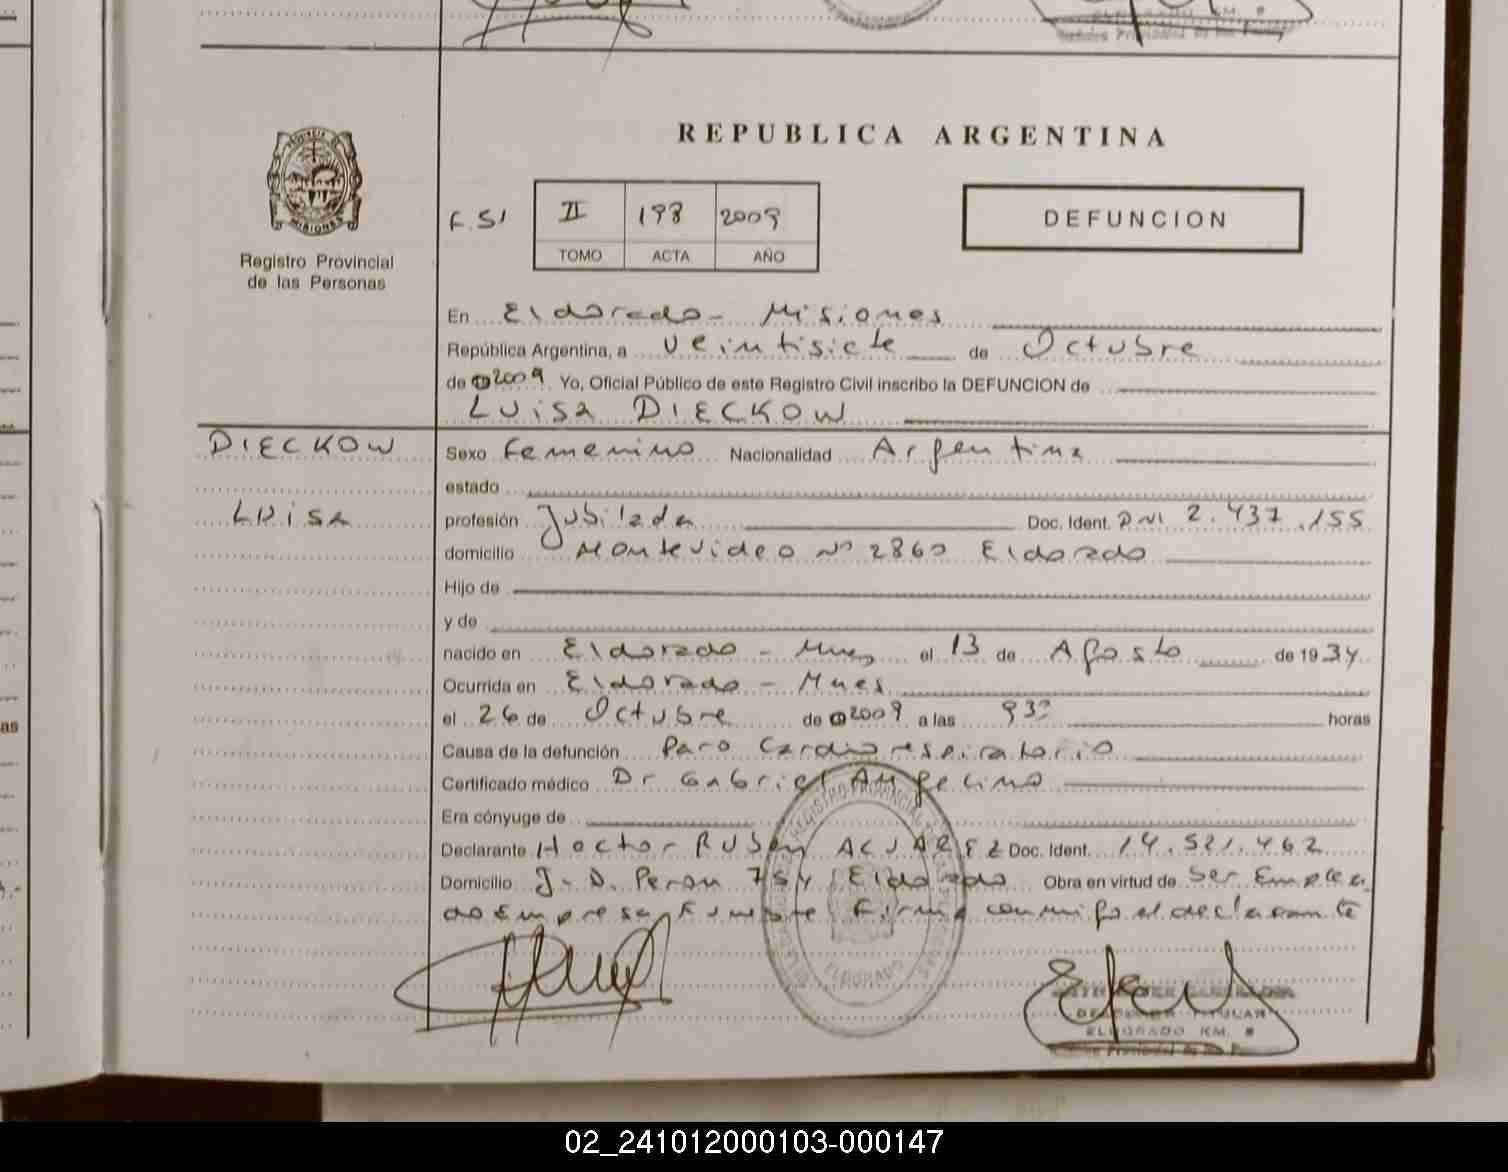 REPUBLICA ARGENTINA
MISIONES
Registro Provincial
de las Personas
F. 51 II 198 2009
TOMO ACTA AÑO
DEFUNCION
En Eldorado - Misiones
República Argentina, a veintisiete de Octubre
de 2009 Yo, Oficial Público de este Registro Civil inscribo la DEFUNCION de
LUISA DIECKOW
DIECKOW
LUISA
Sexo Femenino Nacionalidad Argentina
estado
profesión Jubilada Doc. Ident. DNI 2.437.155
domicilio Montevideo Nº 2860 Eldorado
Hijo de
y de
nacido en Eldorado - Mnes el 13 de Agosto de 1934
Ocurrida en Eldorado - Mnes
el 26 de Octubre de 2009 a las 9 30 horas
Causa de la defunción Paro Cardiorespiratorio
Certificado médico Dr Gabriel Angelino
Era cónyuge de
Declarante Hector Ruben ACUAREZ Doc. Ident. 14.521.462
Domicilio J. D. Peron 754 Eldorado Obra en virtud de Ser Emplea
do Empresa Funebre Firma conmigo el declarante
REGISTRO PROVINCIAL
ELDORADO
TITULAR
ELDORADO KM.
02_241012000103-000147